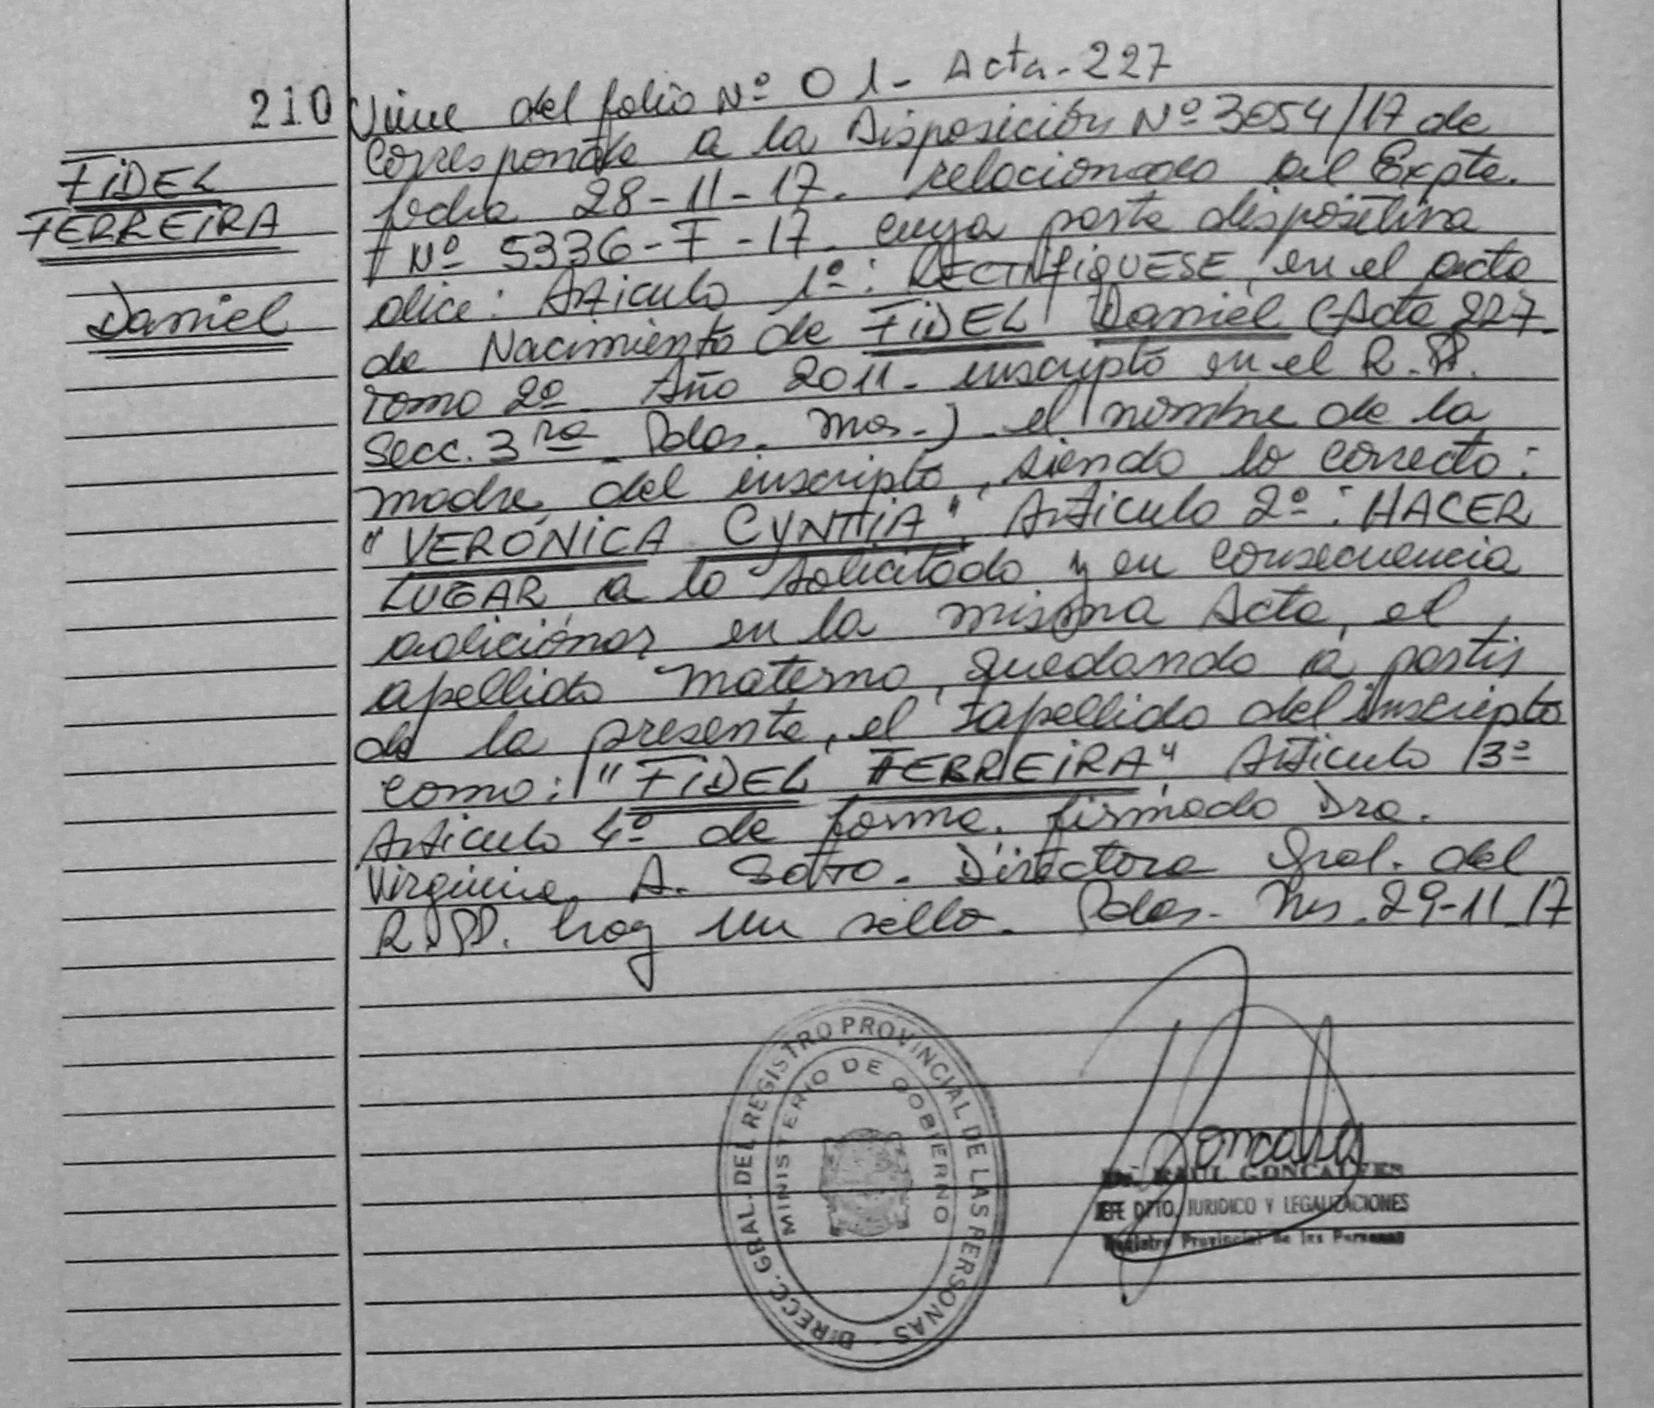 210
FIDEL
FERREIRA
Daniel
Viene del folio Nº 01- Acta-227
Corresponde a la Disposición Nº 3054/17 de
fecha 28-11-17. relacionado al Expte.
Nº 5336-F-17. cuya parte dispositiva
dice: Artículo 1º: RECTIFIQUESE, en el acta
de Nacimiento de FIDEL Daniel (Acta 227.
Tomo 2º. Año 2011. inscripto en el R.PP.
Secc. 3ra Pdas. Mns.). el nombre de la
madre del inscripto, siendo lo correcto:
"VERÓNICA CYNTHIA". Artículo 2º: HACER
LUGAR a lo solicitado y en consecuencia
adicionar en la misma Acta, el
apellido materno, quedando a partir
de la presente, el apellido del inscripto
como: "FIDEL FERREIRA" Artículo 3º
Artículo 4º de forma. firmado Dra.
Virginia A. Sotto. Directora Gral. del
R.PP. hay un sello. Pdas. Mns. 29-11-17
DIRECC. GRAL. DEL REGISTRO PROVINCIAL DE LAS PERSONAS -
MINISTERIO DE GOBIERNO
Goncalves
RAUL GONCALVES
JEFE DPTO. JURIDICO Y LEGALIZACIONES
Registro Provincial de las Personas